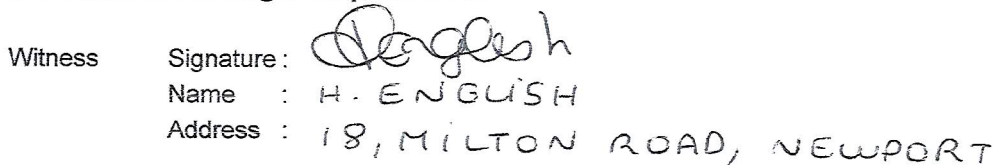 Witness Signature : English
Name : H. ENGLISH
Address : 18, MILTON ROAD, NEWPORT